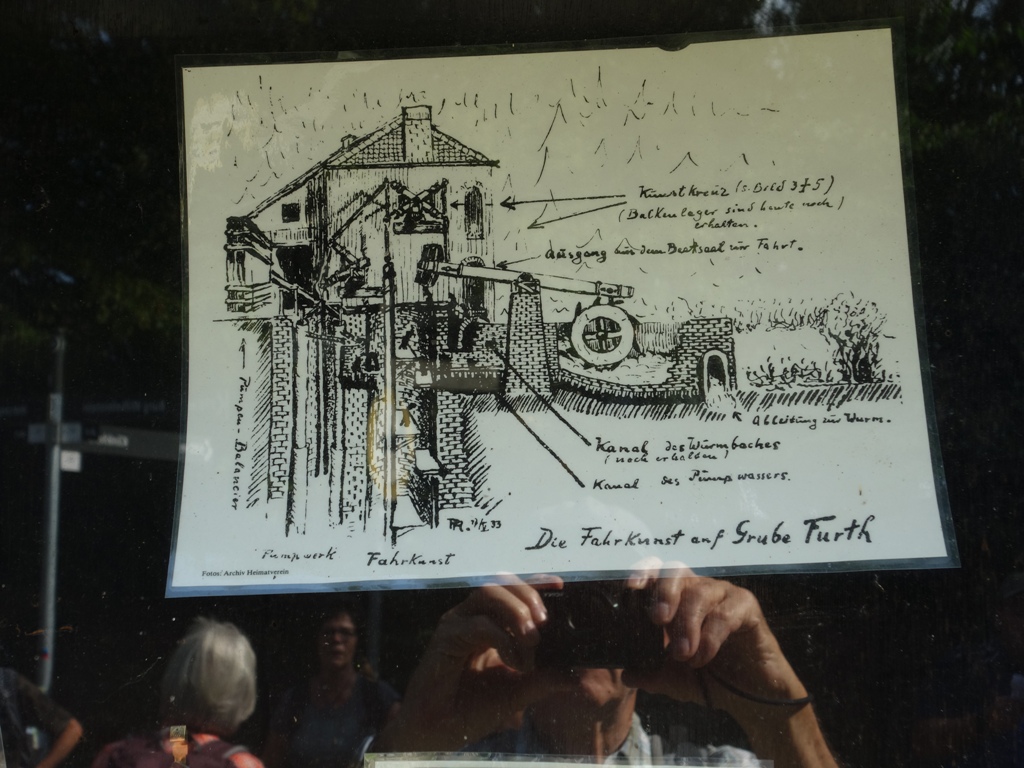 Kunstkreuz (s. Bild 3+5)
(Balkenlager sind heute noch)
erhalten.
Ausgang aus dem Beetsaal zur Fahrt.
Pumpen-Balancier
Ableitung zur Wurm.
Kanal des Wurmbaches
(noch erhalten)
Kanal des Pumpwassers.
Die Fahrkunst auf Grube Furth
Pumpwerk Fahrkunst
Fotos: Archiv Heimatverein